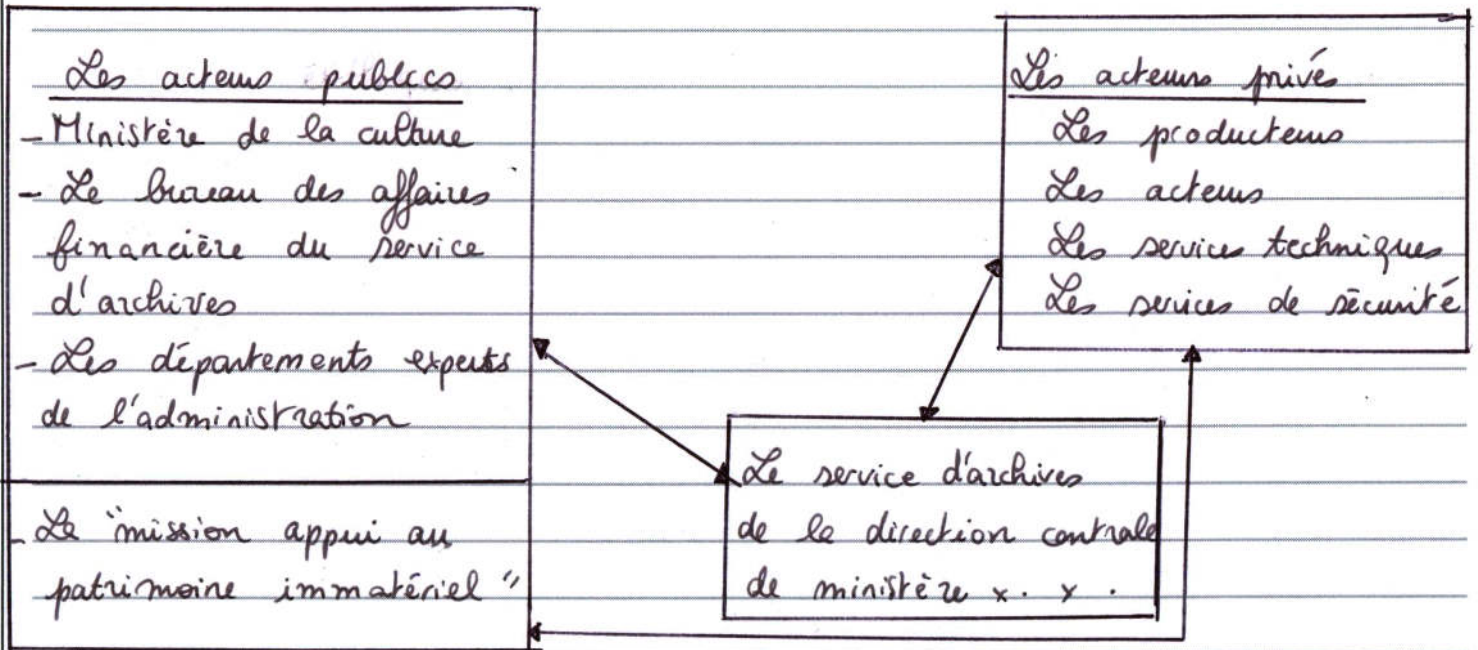 Les acteurs publics
- Ministère de la culture
- Le bureau des affaires
financière du service
d'archives
- Les départements experts
de l'administration
- La "mission appui au
patrimoine immatériel"
Les acteurs privés
Les producteurs
Les acteurs
Les services techniques
Les services de sécurité
Le service d'archives
de la direction centrale
de ministère x. y.